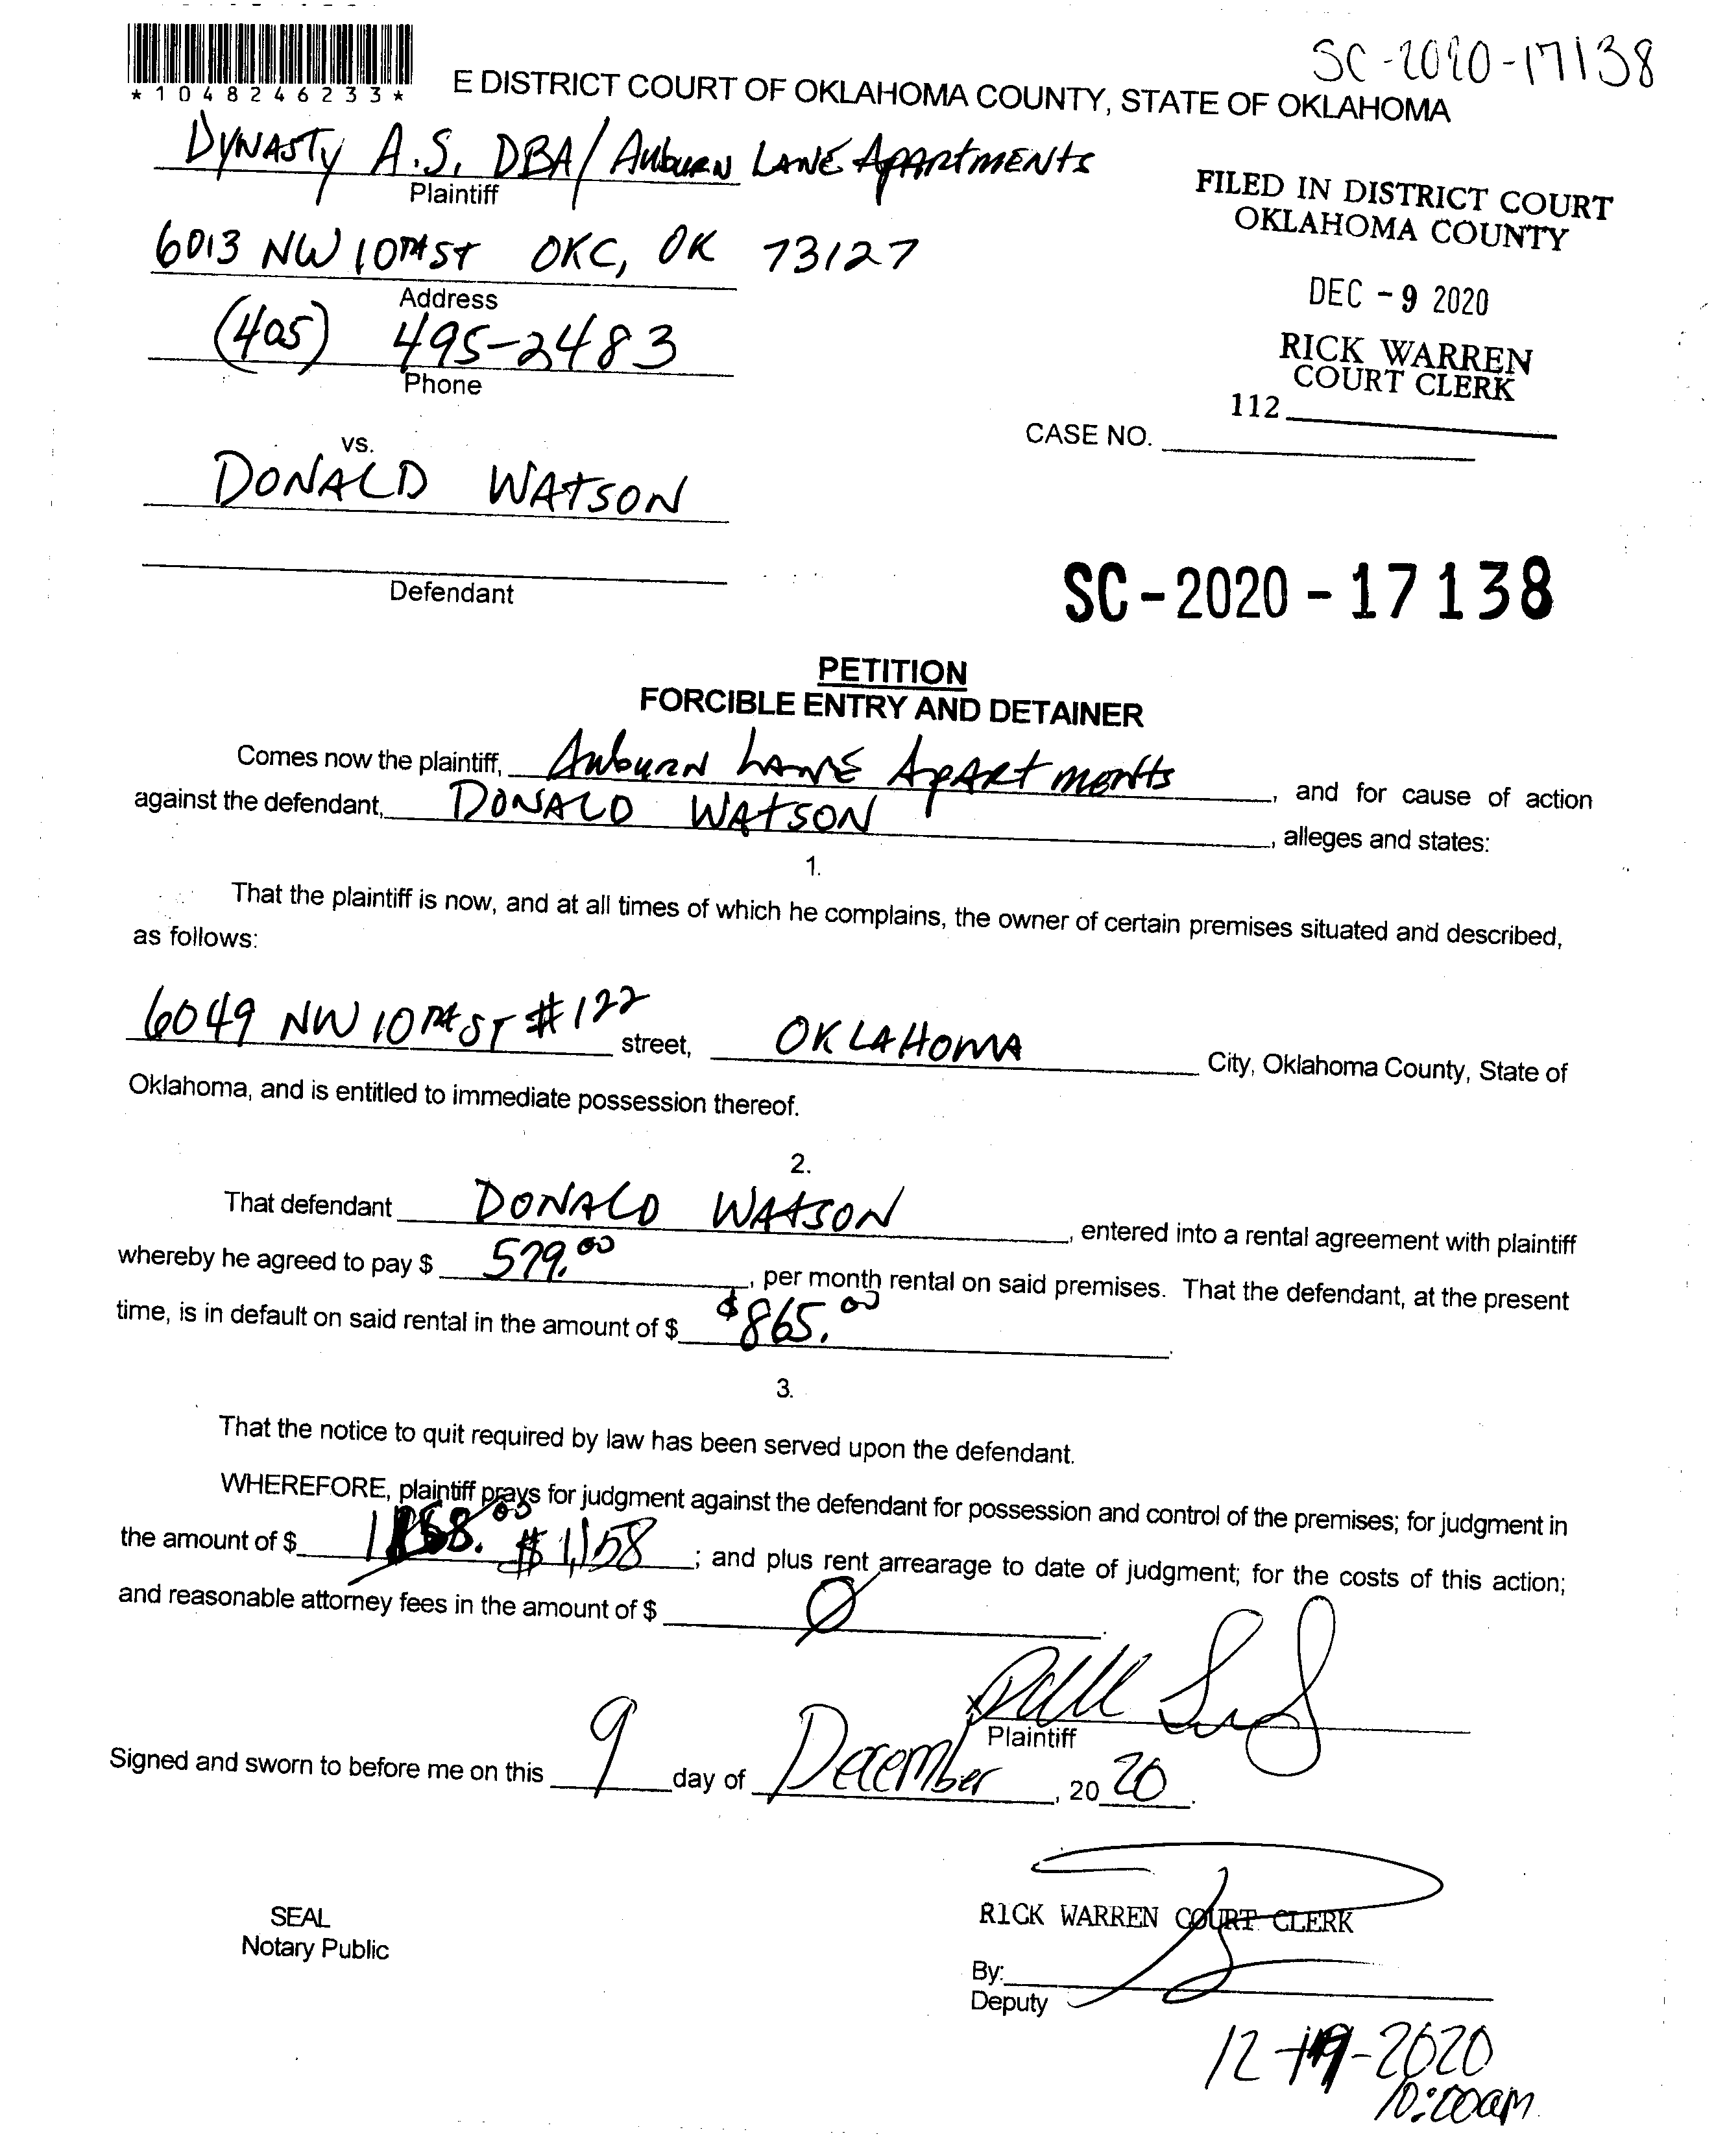 SC-2020-17138
*1048246233*
E DISTRICT COURT OF OKLAHOMA COUNTY, STATE OF OKLAHOMA
DYNASTY A.S. DBA/AUBURN LANE APARTMENTS
Plaintiff
FILED IN DISTRICT COURT
OKLAHOMA COUNTY
6013 NW 10TH ST OKC, OK 73127
Address
DEC -9 2020
(405) 495-2483
Phone
RICK WARREN
COURT CLERK
112
CASE NO.
vs.
DONALD WATSON
Defendant
SC-2020-17138
PETITION
FORCIBLE ENTRY AND DETAINER
Comes now the plaintiff, AUBURN LANE APARTMENTS, and for cause of action
against the defendant, DONALD WATSON, alleges and states:
1.
That the plaintiff is now, and at all times of which he complains, the owner of certain premises situated and described,
as follows:
6049 NW 10TH ST #122 street, OKLAHOMA City, Oklahoma County, State of
Oklahoma, and is entitled to immediate possession thereof.
2.
That defendant DONALD WATSON, entered into a rental agreement with plaintiff
whereby he agreed to pay $ 579.00, per month rental on said premises. That the defendant, at the present
time, is in default on said rental in the amount of $ $865.00.
3.
That the notice to quit required by law has been served upon the defendant.
WHEREFORE, plaintiff prays for judgment against the defendant for possession and control of the premises; for judgment in
the amount of $ $1,158; and plus rent arrearage to date of judgment; for the costs of this action;
and reasonable attorney fees in the amount of $ Ø.
Plaintiff
Signed and sworn to before me on this 9 day of December, 2020.
SEAL
Notary Public
RICK WARREN COURT CLERK
By:
Deputy
12-19-2020
10:00am